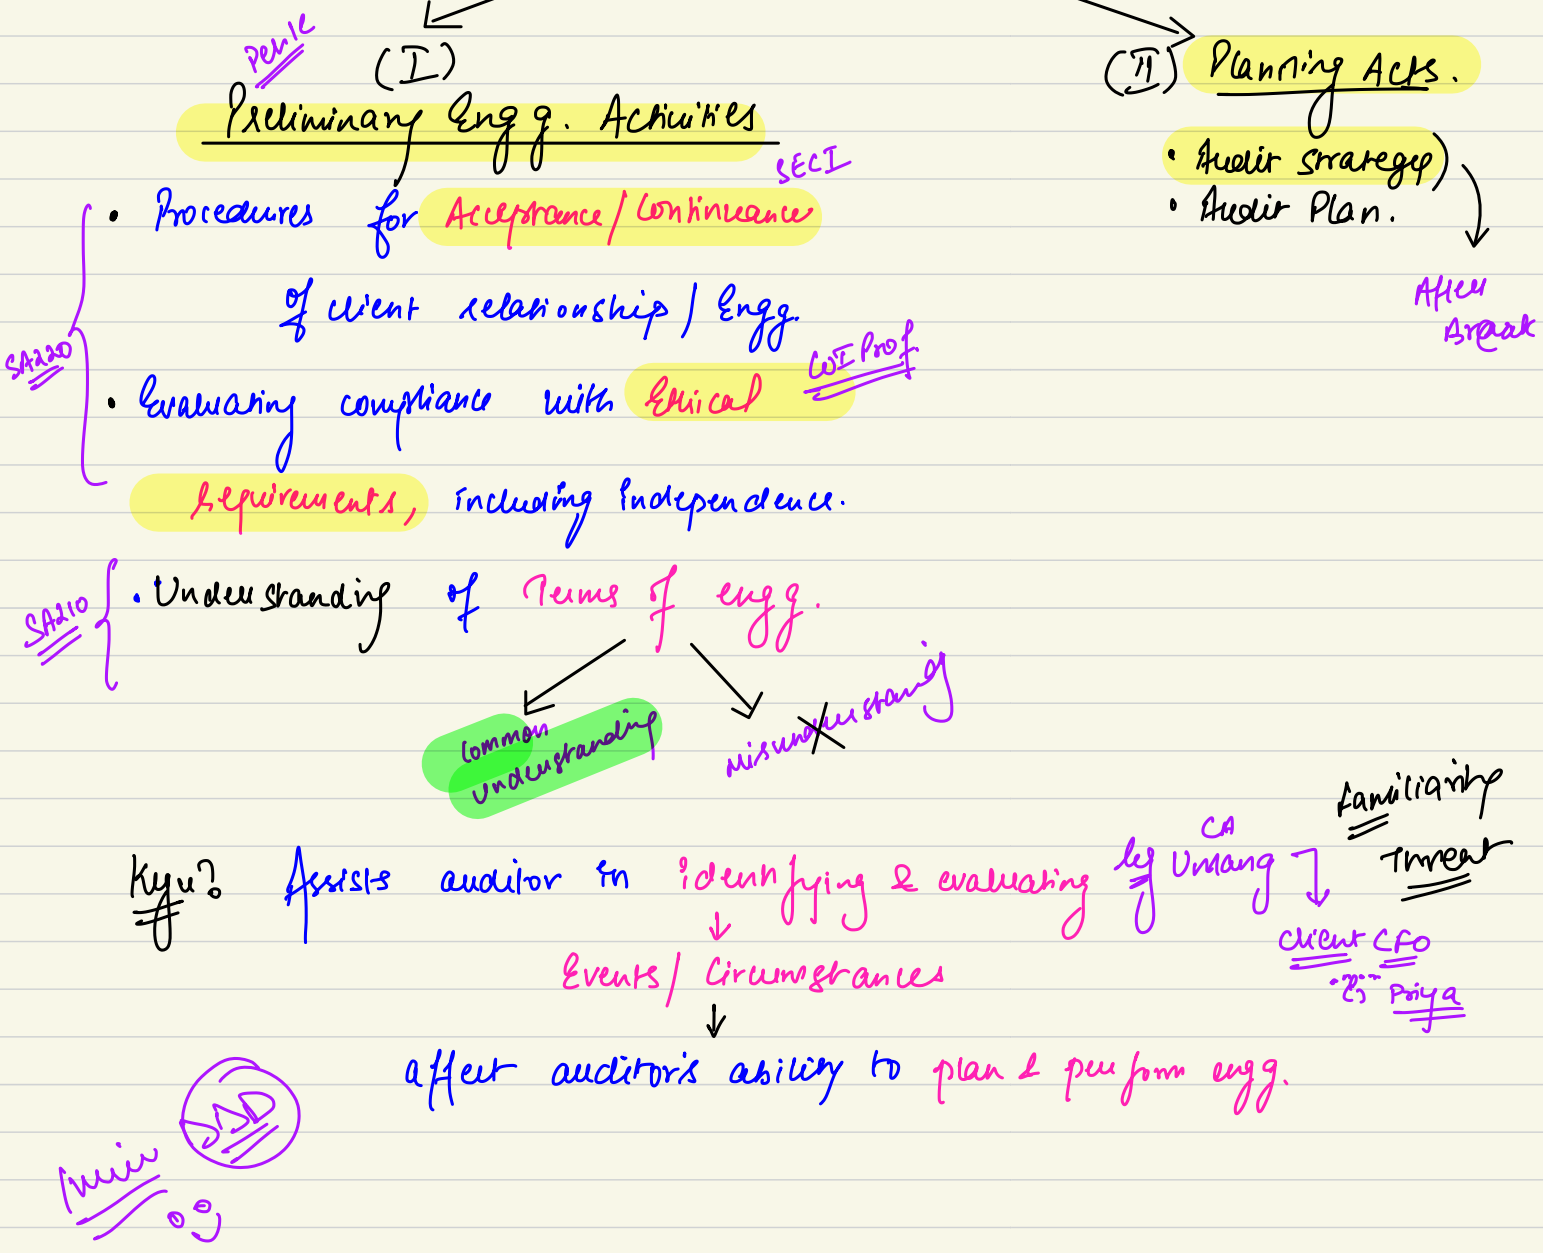 Pehle
(I)
Preliminary Engg. Activities
SECI
SA220
• Procedures for Acceptance/Continuance
of client relationship/Engg.
• Evaluating compliance with Ethical
COI Prof
Requirements, including Independence.
SA210
• Understanding of Terms of engg.
Common
Understanding
misunderstanding
Kyu? Assists auditor in identifying & evaluating
Events/Circumstances
affect auditor's ability to plan & perform engg.
eg CA
Umang
Client CFO
Priya
Familiarity
Threat
(II) Planning Acts.
• Audit Strategy)
• Audit Plan.
After
Break